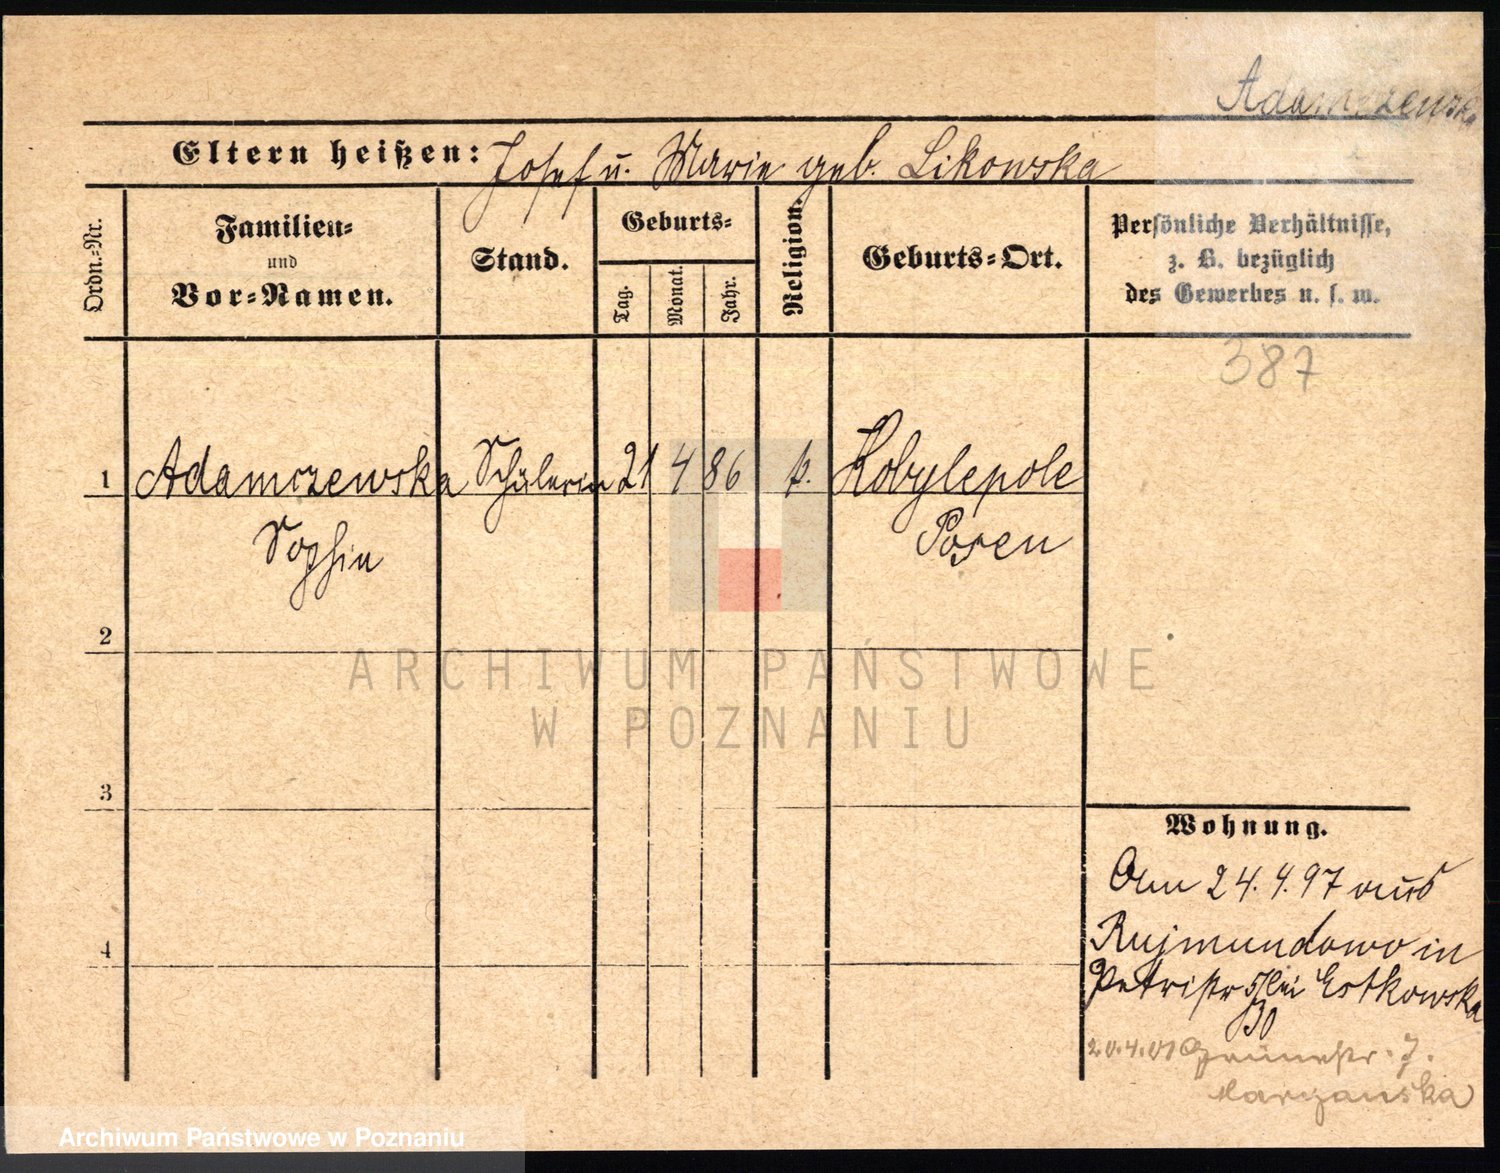 Adamczewska
Eltern heißen: Josef u. Marie geb. Likowska
Ordn.-Nr.
Familien-
und
Vor-Namen.
Stand.
Geburts-
Tag.
Monat.
Jahr.
Religion.
Geburts-Ort.
Persönliche Verhältnisse,
z. B. bezüglich
des Gewerbes u. s. w.
387
1 Adamczewska Schülerin 21 4 86 k. Kobylepole
Sophie Posen
2
ARCHIWUM PAŃSTWOWE
W POZNANIU
3
Wohnung.
Am 24.4.97 aus
4
Rujmundowo in
Petristr 5 bei Estkowska
30
20.4.01 Grünestr. 7.
Archiwum Państwowe w Poznaniu